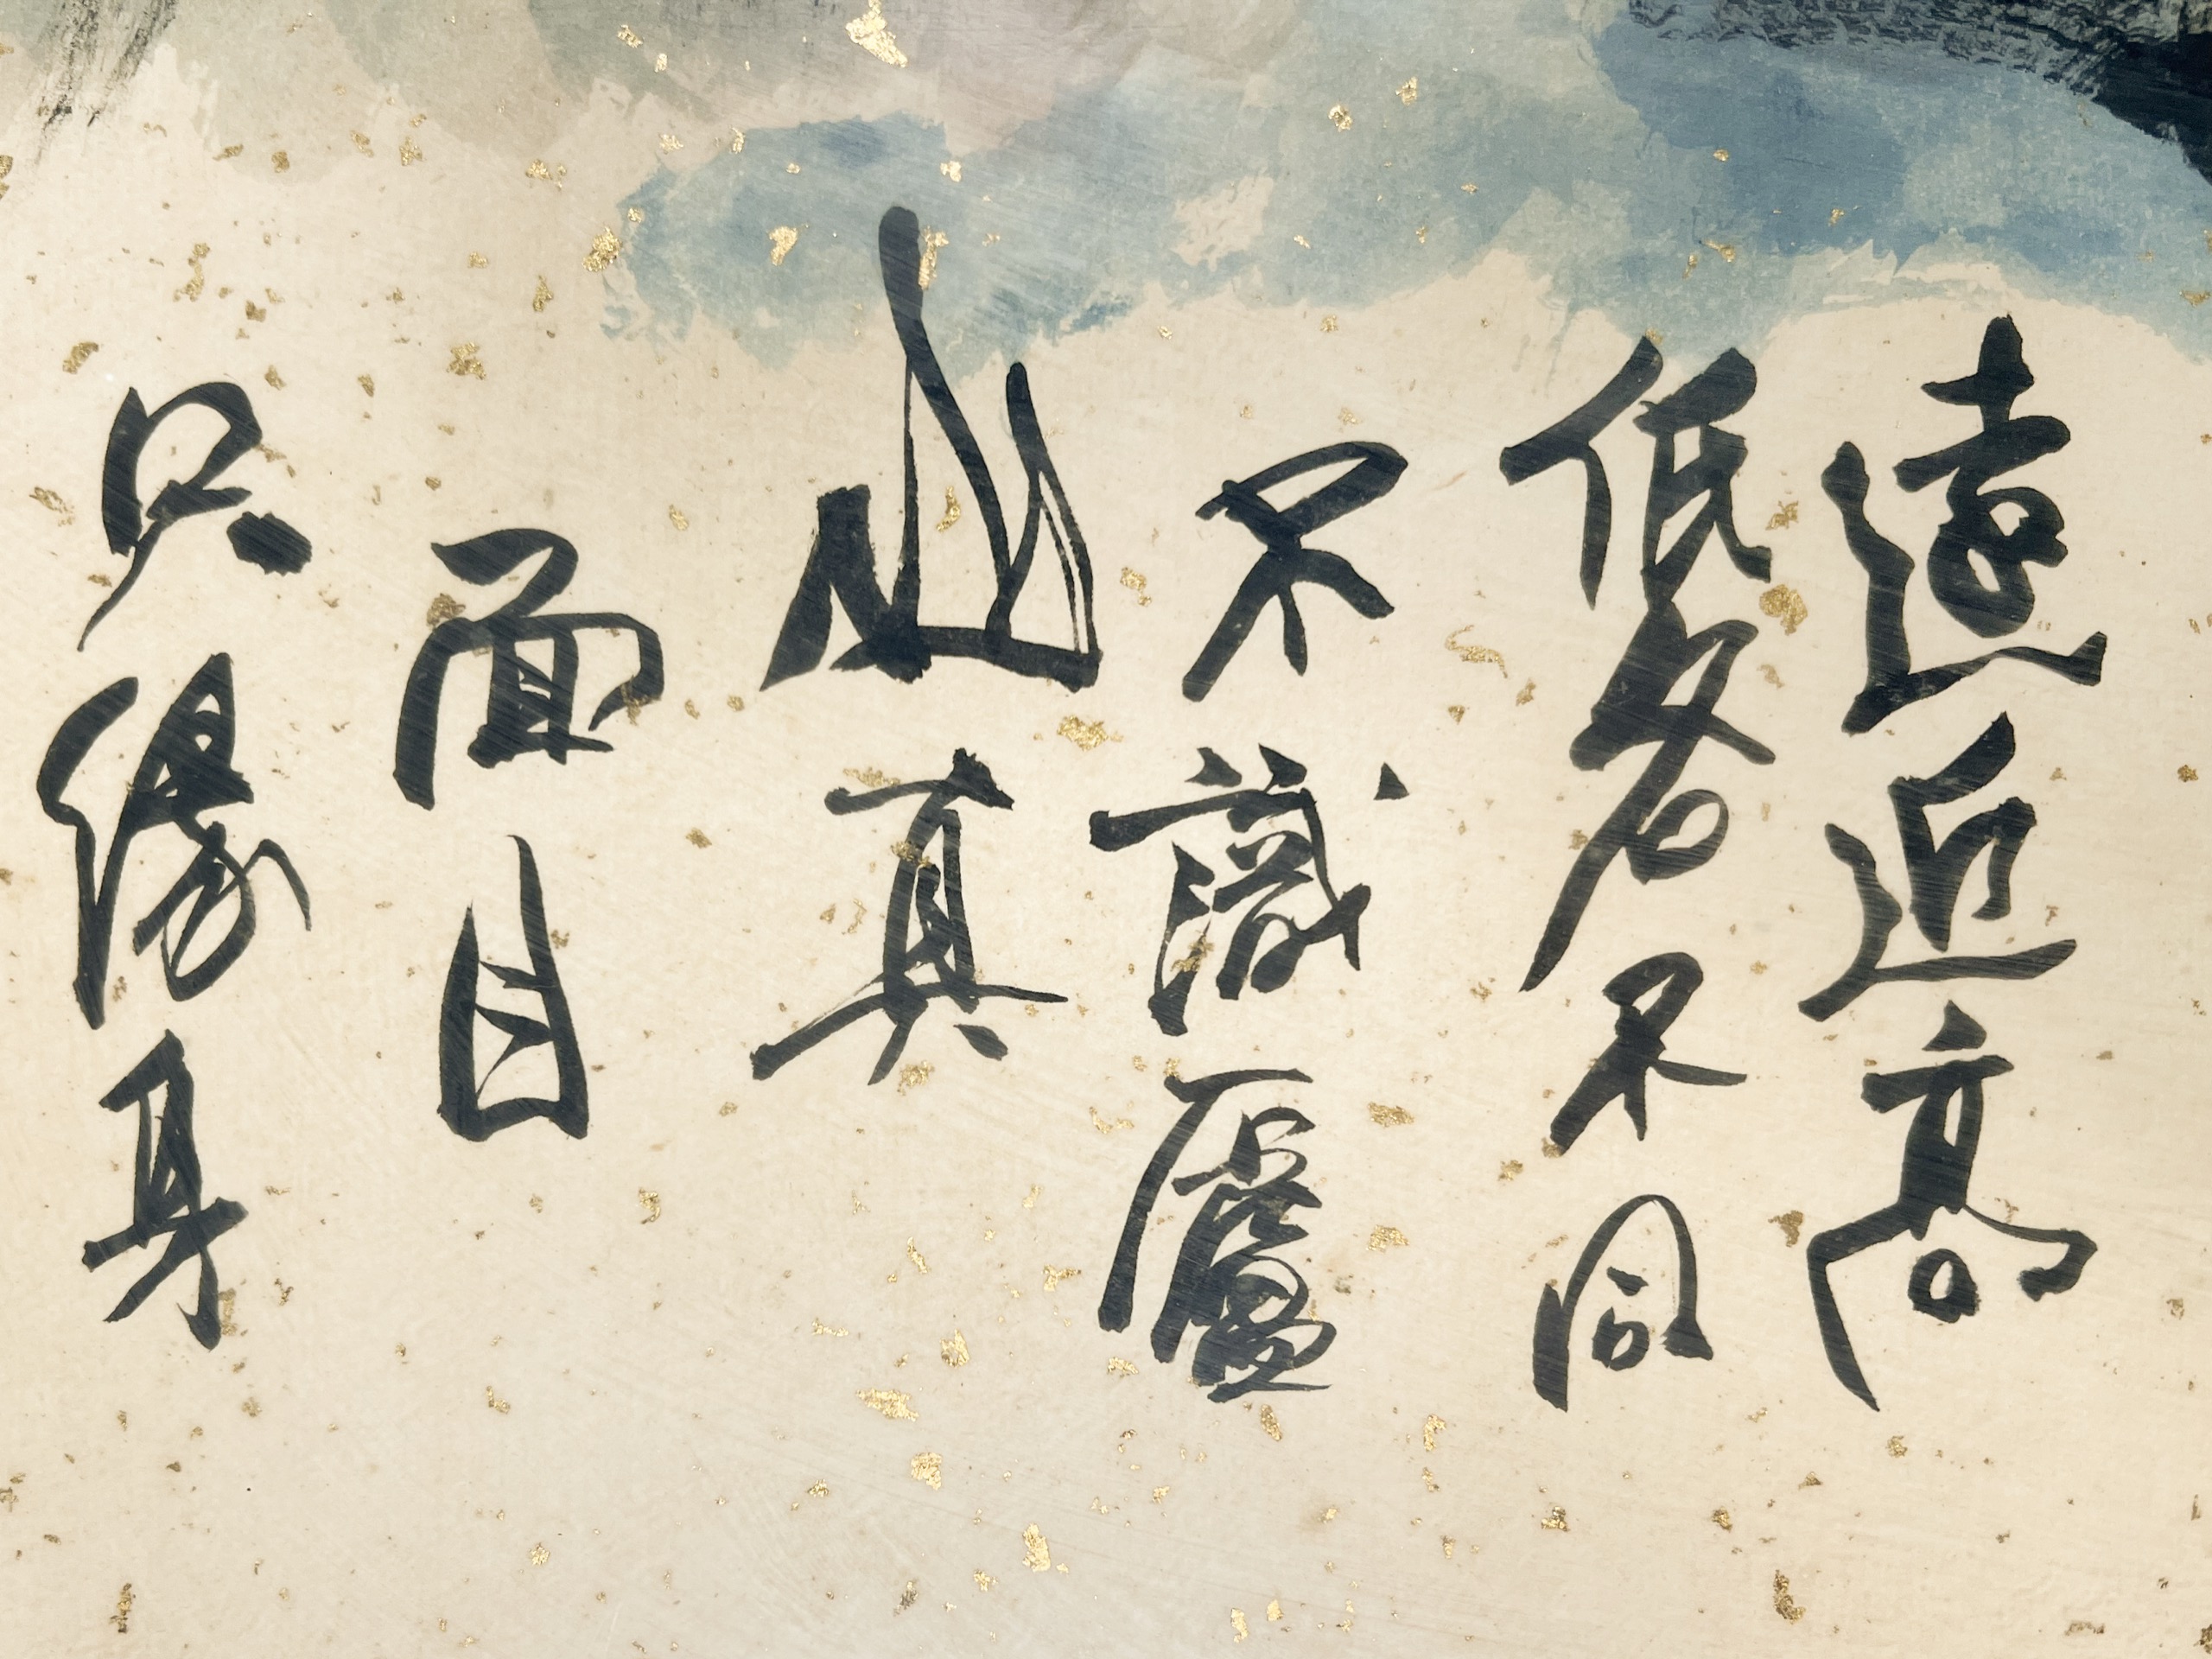 遠近高
低各不同
不識廬
山真
面目
只緣身